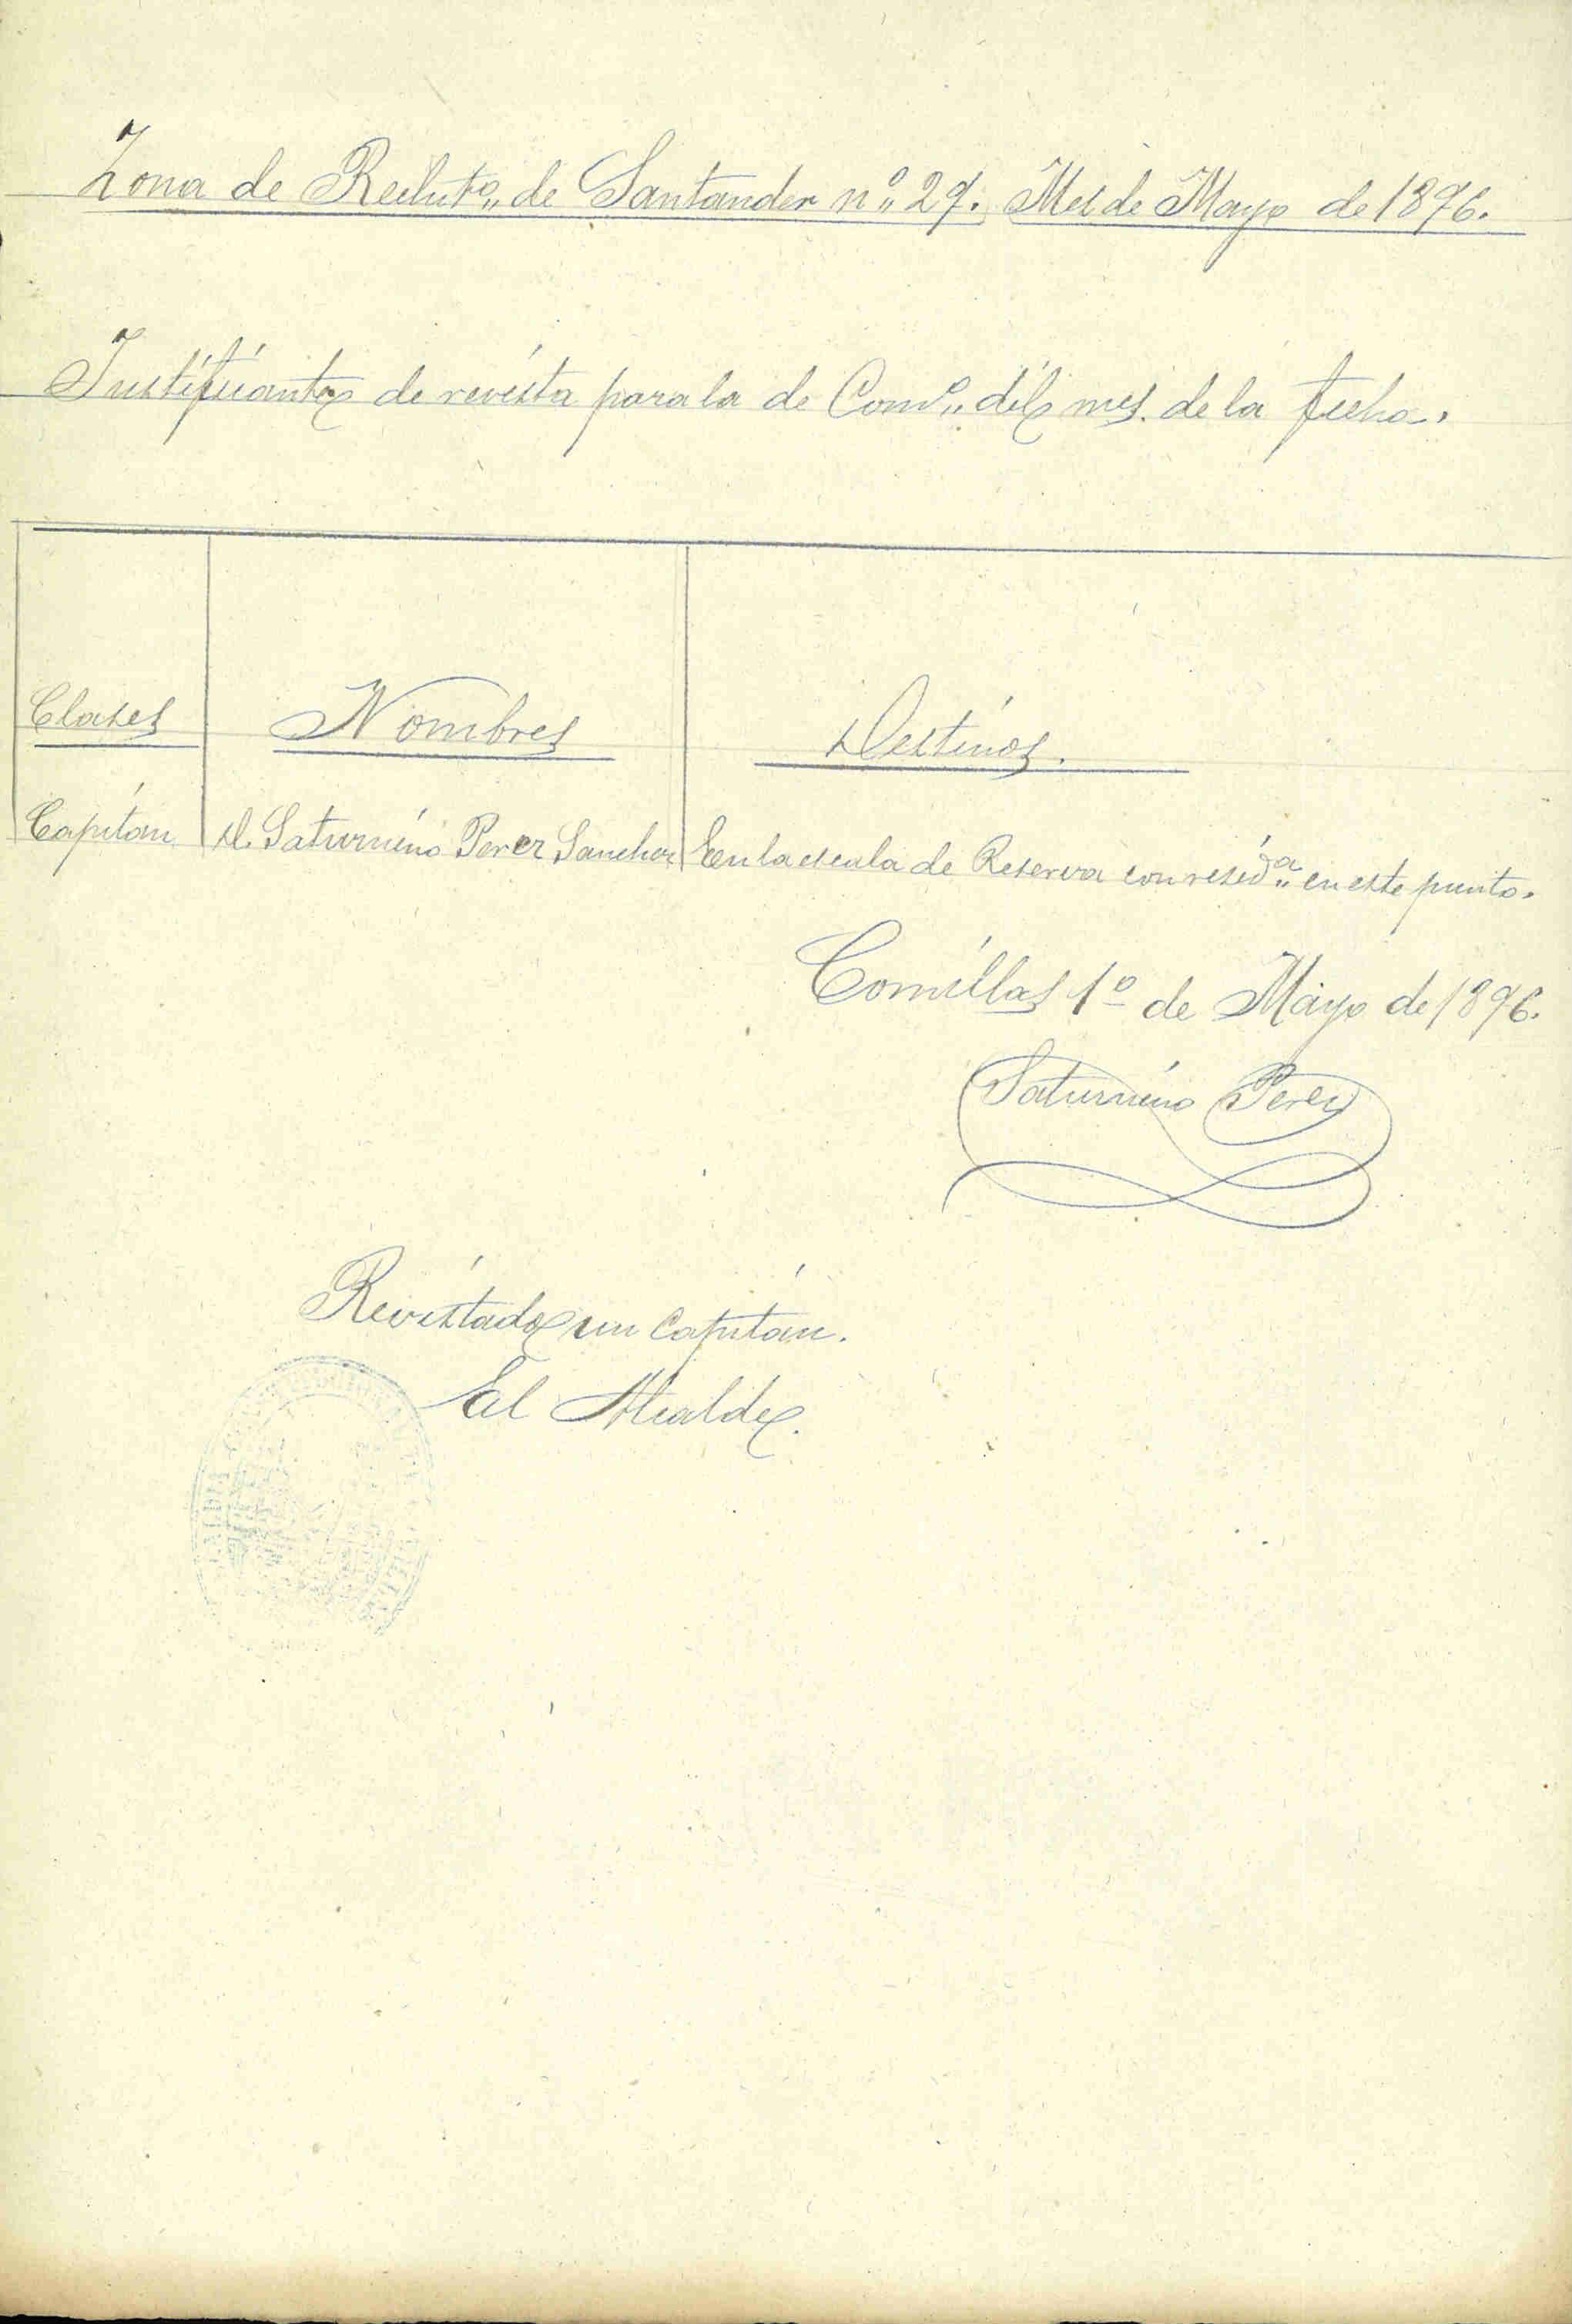 Zona de Reclutº,, de Santander nº,, 29. Mes de Mayo de 1896.
Justificante de revista para la de Comº,, del mes de la fecha.
Clases Nombres Destinos.
Capitán D. Saturnino Perez Sanchez En la escala de Reserva con residª,, en este punto.
Comillas 1º de Mayo de 1896.
Saturnino Perez
Revistado un capitán.
El Alcalde.